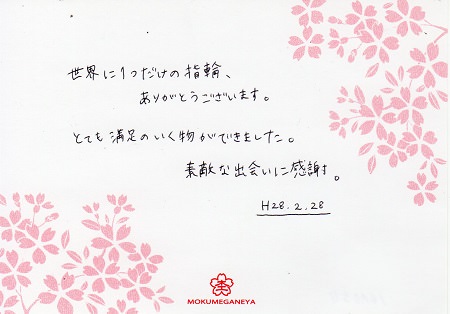 世界に1つだけの指輪、
ありがとうございます。
とても満足のいく物ができました。
素敵な出会いに感謝。
H28.2.28
MOKUMEGANEYA